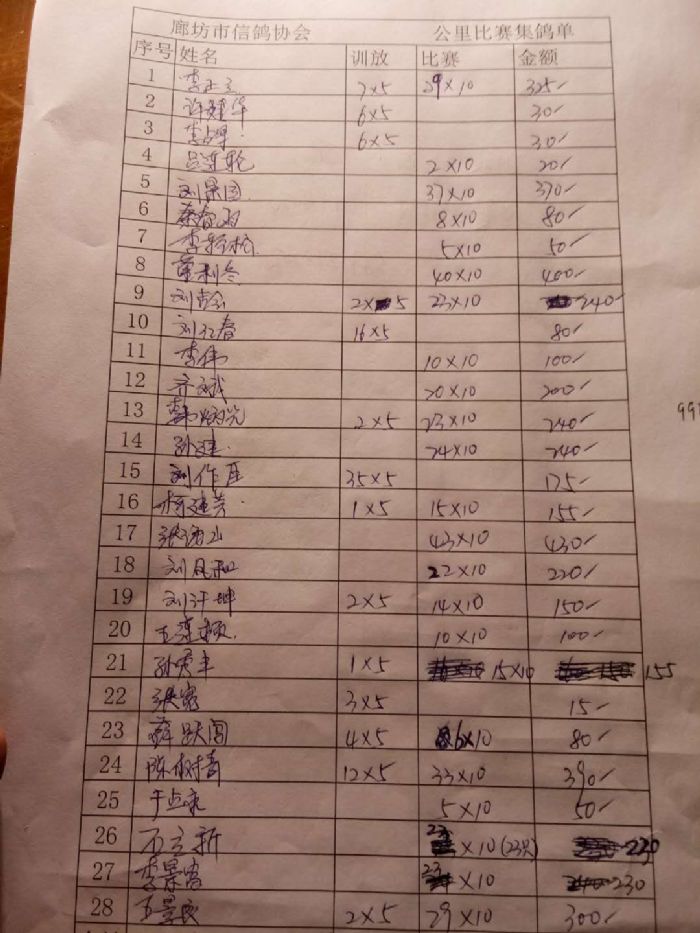 廊坊市信鸽协会 公里比赛集鸽单
序号 姓名 训放 比赛 金额
1 李正立 7×5 29×10 325
2 许建华 6×5 30
3 李占军 6×5 30
4 吕连轮 2×10 20
5 刘景国 37×10 370
6 8×10 80
7 李 5×10 50
8 董利冬 40×10 400
9 刘 2×5 23×10 240
10 刘江春 16×5 80
11 李伟 10×10 100
12 齐斌 20×10 200
13 韩 2×5 23×10 240
14 孙建 24×10 240
15 刘作 35×5 175
16 杨建芳 1×5 15×10 155
17 张 43×10 430
18 刘凤和 22×10 220
19 刘汗坤 2×5 14×10 150
20 王连 10×10 100
21 孙秀丰 1×5 15×10 155
22 张 3×5 15
23 薛跃国 4×5 6×10 80
24 陈树 12×5 33×10 390
25 于占永 5×10 50
26 石立新 23×10(23只) 230
27 李景富 23×10 230
28 王景良 2×5 29×10 300
991